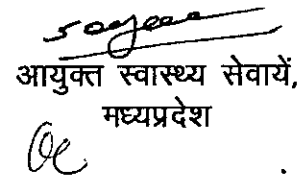 आयुक्त स्वास्थ्य सेवायें,
मध्यप्रदेश